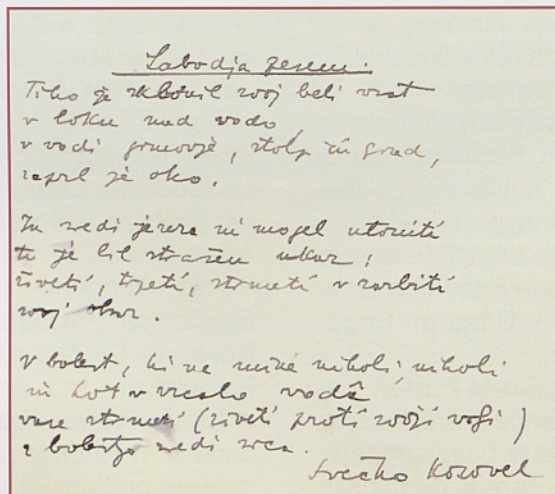 Labodja pesem.
Tiho je sklonil svoj beli vrat
v loku nad vodo,
v vodi grmovje, stolp in grad,
zaprl je oko.
In sredi jezera ni mogel utoniti
to je bil strašen ukaz;
živeti, trpeti, strmeti v razbiti
svoj obraz.
V bolest, ki ne mine nikoli, nikoli
in kot v vodo
vase strmeti (živeti proti svoji volji)
z boljo sredi srca.
Srečko Kosovel